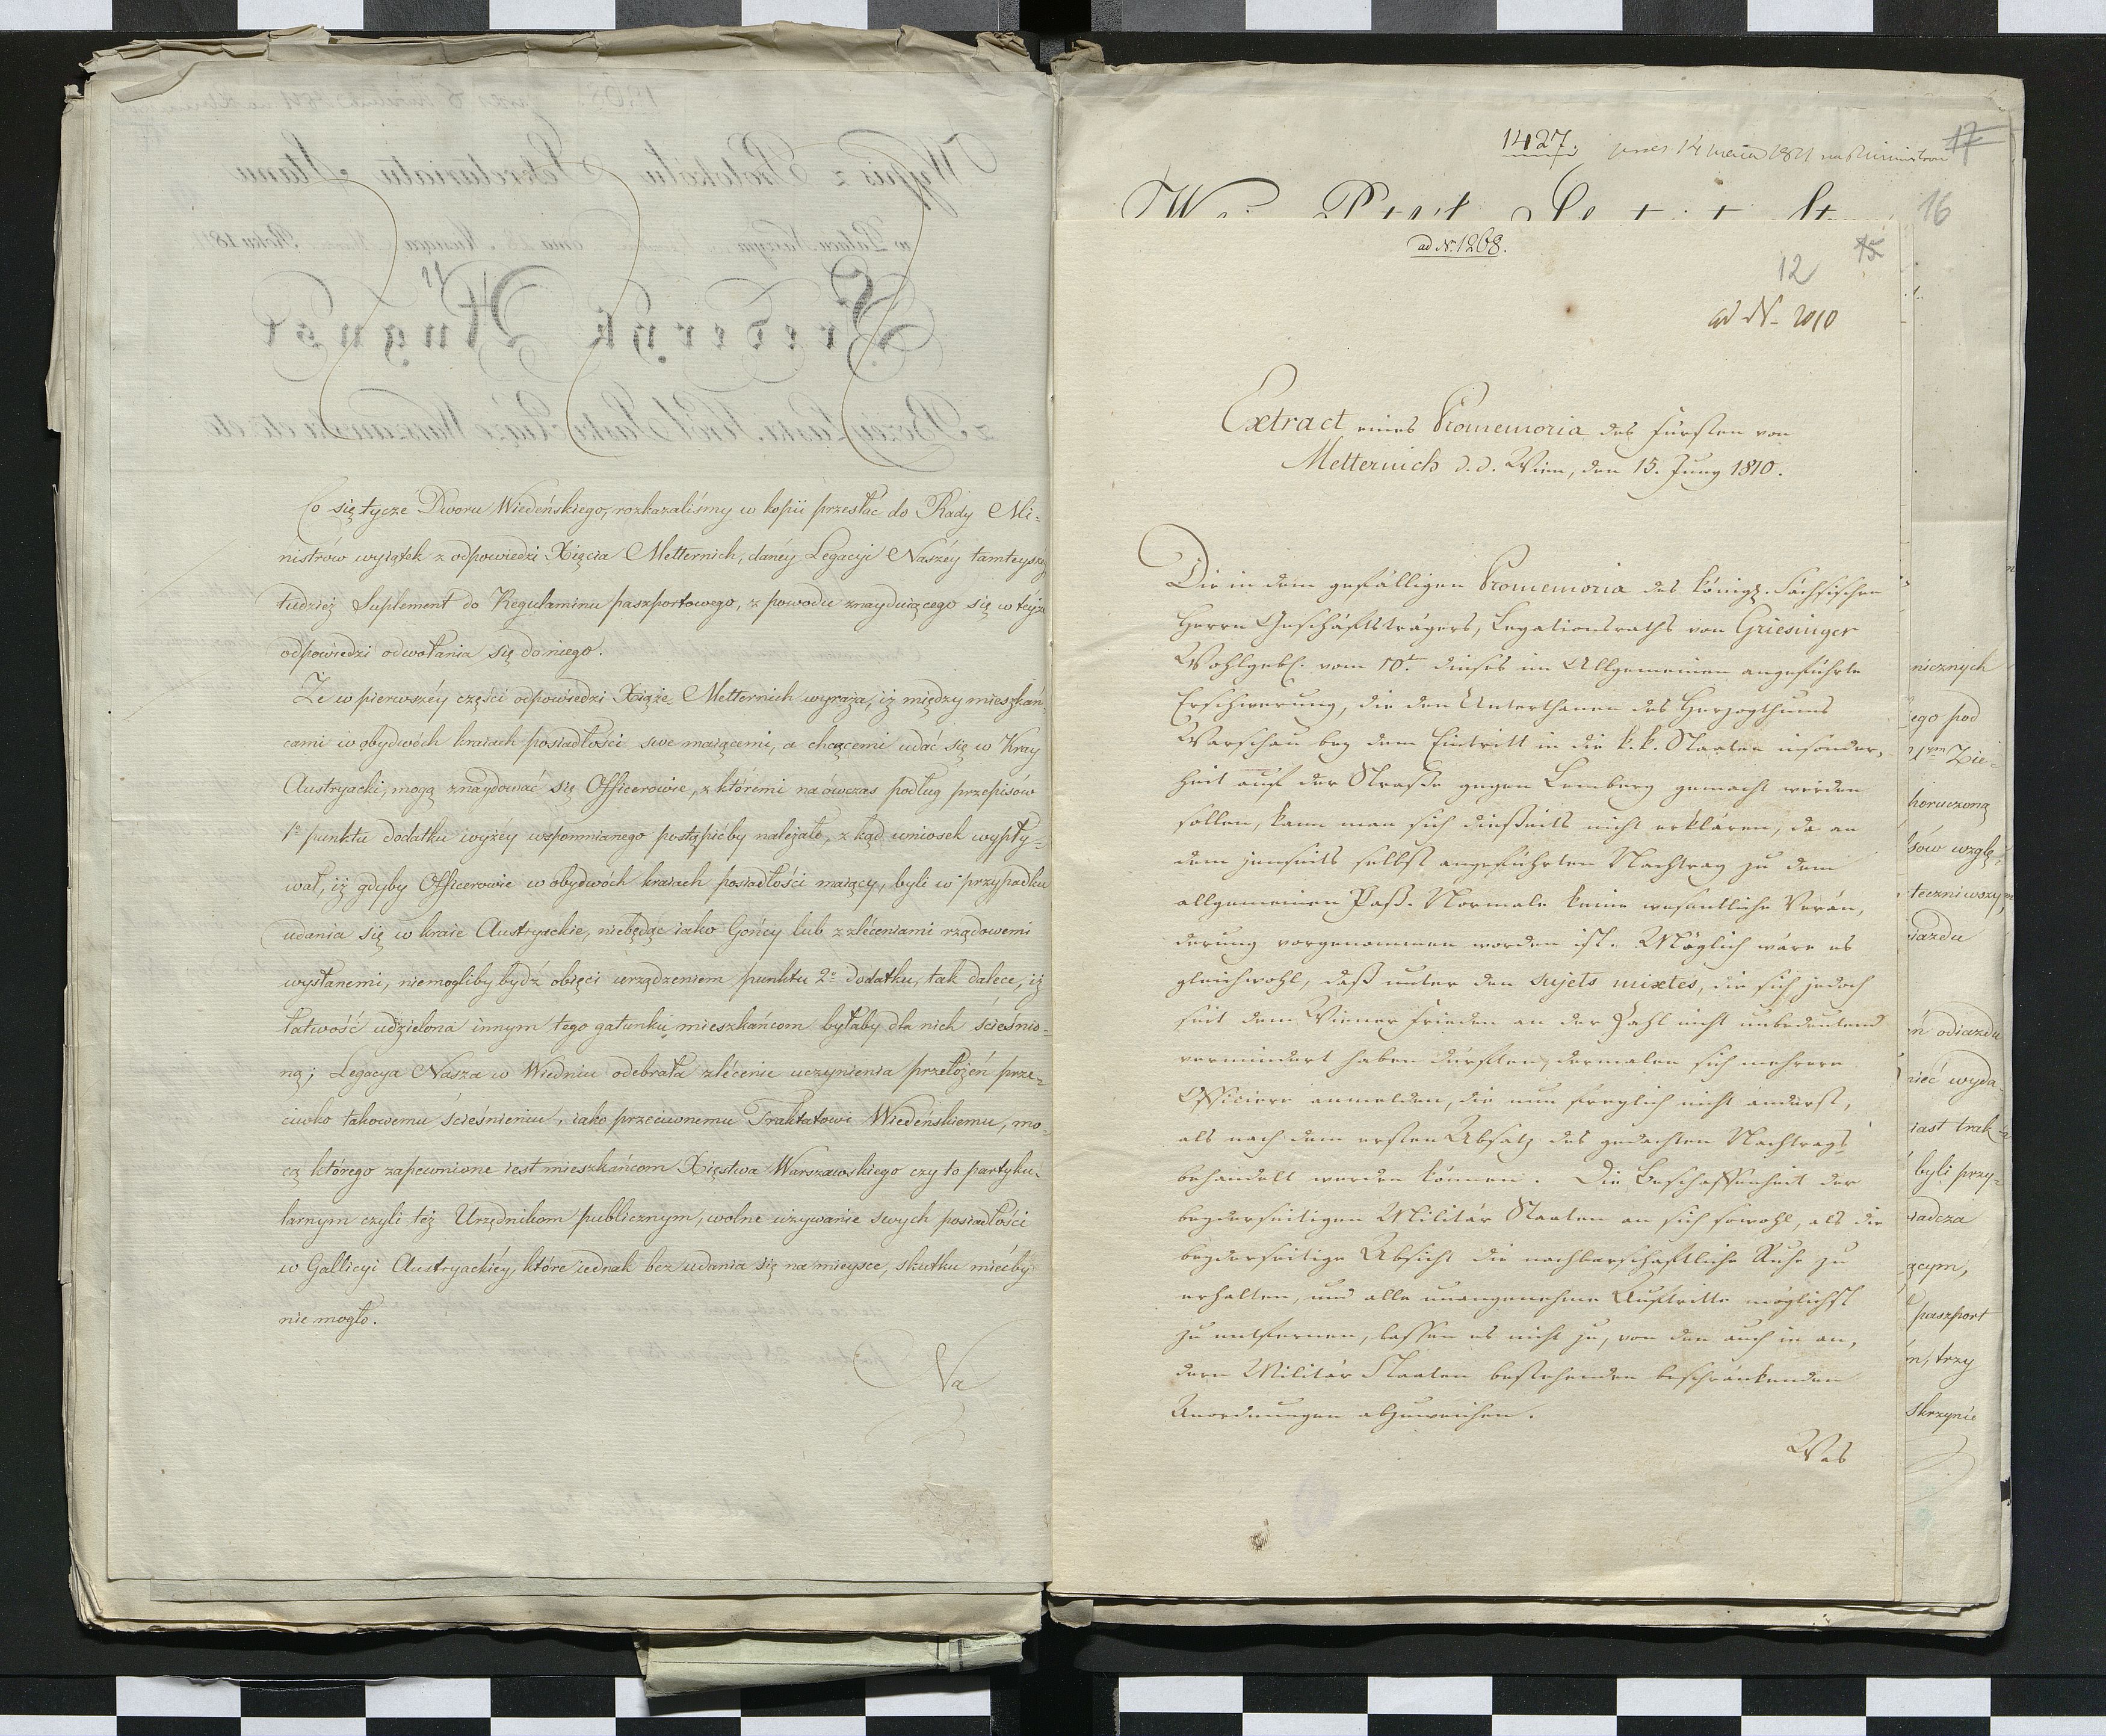 Co się tycze Dworu Wiedeńskiego, rozkazaliśmy w kopii przesłac do Rady Mi-
nistrów wyiątek z odpowiedzi Xięcia Metternich, danéy Legacyi Naszéy tamteyszéy
tudzież Suplement do Regulaminu paszportowego, z powodu znayduiącego się w teyże
odpowiedzi odwołania się do niego.
Ze w pierwszéy części odpowiedzi Xiąże Metternich wyraża, iż między mieszkań-
cami w obydwóch kraiach posiadłości swe maiącemi, a chcącemi udać się w Kray
Austryacki, mogą znaydować się Officerowie, z któremi naówczas podług przepisów
1o punktu dodatku wyżéy wspomnianego postąpićby należało, z kąd wniosek wypły-
wał, iż gdyby Officerowie w obydwóch kraiach posiadłości maiący, byli w przypadku
udania się w kraie Austryackie, niebędąc iako Gońcy lub z zléceniami rządowemi
wysłanemi, niemogliby bydź obięci urządzeniem punktu 2o dodatku, tak dalece, iż
łatwość udzielona innym tego gatunku mieszkańcom byłaby dla nich ścieśnio-
ną; Legacya Nasza w Wiedniu odebrała zlécenie uczynienia przełożeń prze-
ciwko takowemu ścieśnieniu, iako przeciwnemu Traktatowi Wiedeńskiemu, mo-
cą którego zapewnione iest mieszkańcom Xięstwa Warszawskiego czy to partyku-
larnym czyli też Urzędnikom publicznym, wolne używanie swych posiadłości
w Gallicyi Austryackiéy, które iednak bez udania się na mieysce, skutku miećby
nie mogło.
Na
1427.
17
16
ad N. 1268.
15
12
ad N- 2010
Extract eines Promemoria des Fürsten von
Metternich d. d. Wien, den 15. Juny 1810.
Die in dem gefälligen Promemoria des Königl. Sächsischen
Herrn Geschäftsträgers, Legationsraths von Griesinger
Wohlgeb. vom 10t. dieses im Allgemeinen angeführte
Erschwerung, die den Unterthanen des Herzogthums
Warschau bey dem Eintritt in die k. k. Staaten insonder-
heit auf der Straße gegen Lemberg gemacht werden
sollen, kann man sich dießeits nicht erklären, da an
dem jenseits selbst angeführten Nachtrag zu dem
allgemeinen Paß-Normale keine wesentliche Verän-
derung vorgenommen worden ist. Möglich wäre es
gleichwohl, daß unter den sujets mixtes, die sich jedoch
seit dem Wiener Frieden an der Zahl nicht unbedeutend
vermindert haben dürften, dermalen sich mehrere
Officiere anmelden, die nun freylich nicht anderst,
als nach dem ersten Absatz des gedachten Nachtrags
behandelt werden können. Die Beschaffenheit der
beyderseitigen Militär Staaten an sich sowohl, als die
beyderseitige Absicht die nachbarschaftliche Ruhe zu
erhalten, und alle unangenehme Auftritte möglichst
zu entfernen, lassen es nicht zu, von den auch in an-
dern Militär Staaten bestehenden beschränkenden
Anordnungen abzuweichen.
Was
nicznych
ego pod
poruczoną
sów wzglę-
iazdu
ń odiazdu
nieć wyda-
iast trak-
byli przy-
iadcza
ącym,
paszport
m, trzy
skrzynie